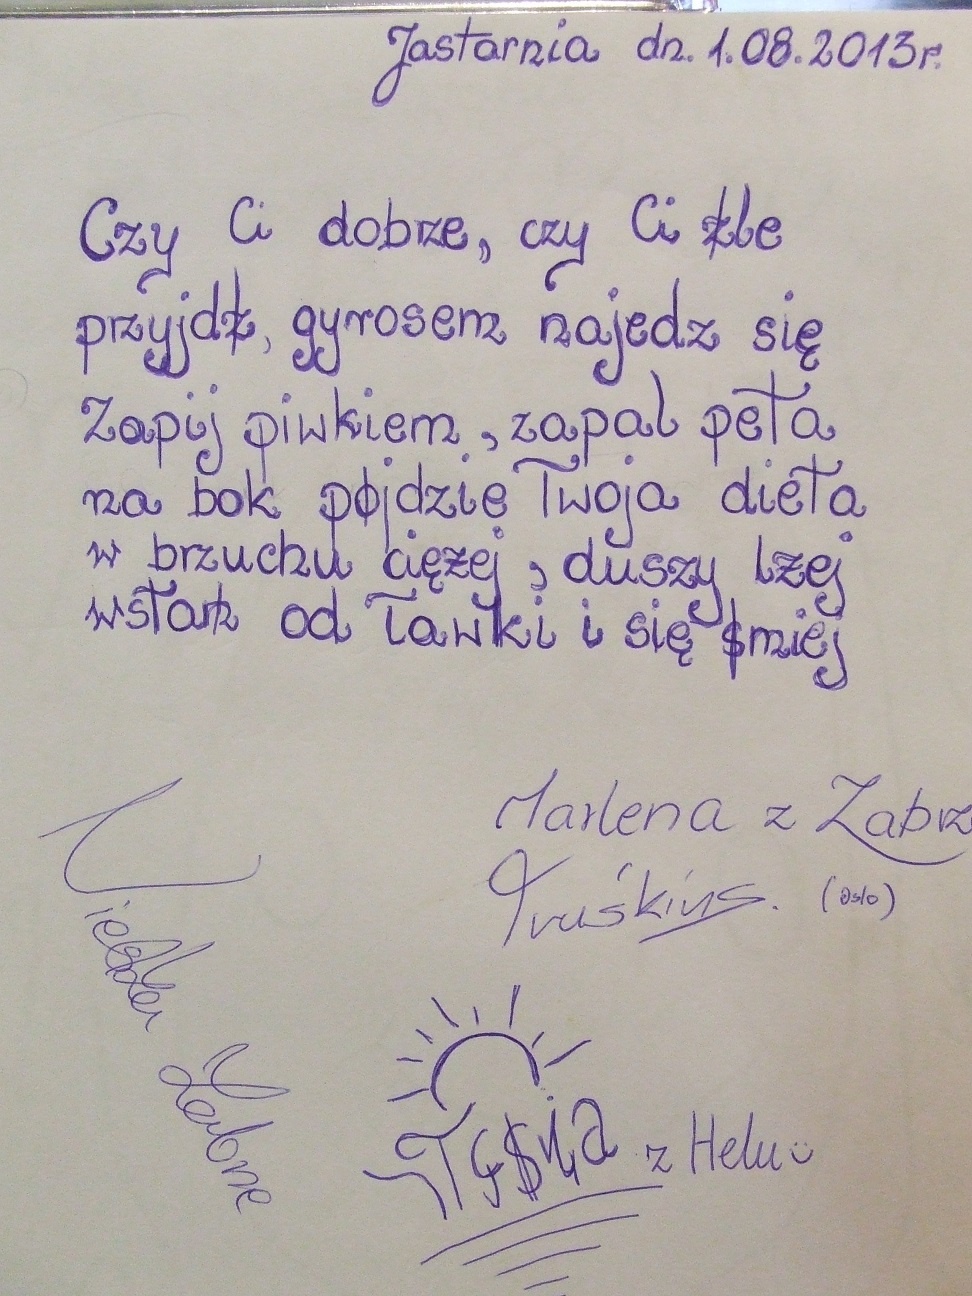 Jastarnia dn. 1.08.2013r.
Czy Ci dobrze, czy Ci źle
przyjdź, gyrosem najedz się
Zapij piwkiem, zapal peta
na bok pójdzie Twoja dieta
w brzuchu ciężej, duszy lżej
wstań od ławki i się śmiej
Marlena z Zabrz
(Oslo)
z Helu